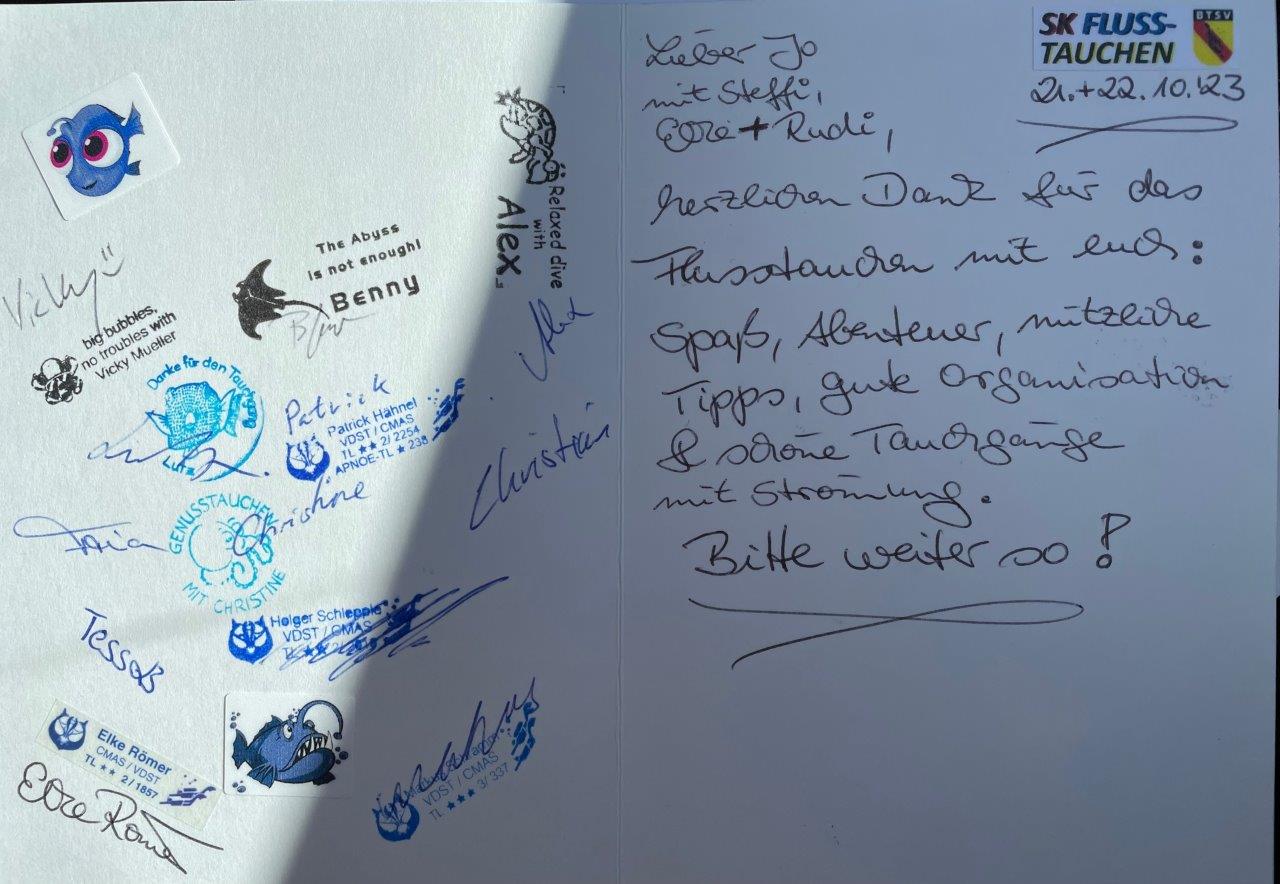 Vicky
big bubbles,
no troubles with
Vicky Mueller
The Abyss
is not enough!
BENNY
Relaxed dive
with
Alex
Alex
Danke für den Tauchgang
Lutz
Patrick
Patrick Hähnel
VDST / CMAS
TL ★★ 2/ 2254
APNOE-TL ★ 238
Christian
GENUSSTAUCHEN
MIT CHRISTINE
Christine
Tessa B
Holger Schlepple
VDST / CMAS
TL ★★ 2/
Elke Römer
CMAS / VDST
TL ★★ 2/1857
Elke Römer
Markus
VDST / CMAS
TL ★★★ 3/ 337
SK FLUSS-
TAUCHEN
BTSV
21.+22.10.'23
Lieber Jo
mit Steffi,
Elke + Rudi,
herzlichen Dank für das
Flusstauchen mit euch:
Spaß, Abenteuer, nützliche
Tipps, gute Organisation
& schöne Tauchgänge
mit Strömung.
Bitte weiter so!